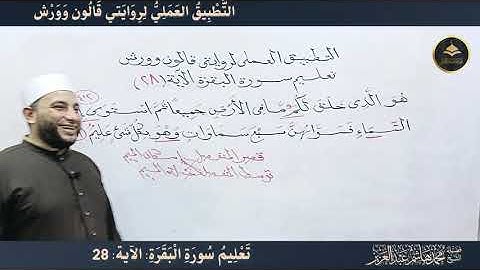 التَّطْبِيقُ العَمَلِيُّ لِرِوَايَتَي قَالُون وَوَرْش
التطبيق العملي لروايتي قالون وورش
تعليم سورة البقرة الآية (٢٨)
هو الَّذى خلق لكم ما فى الأرض جميعا ثم استوى إلى
السماء فسواهن سبع سماوات وهو بكل شئ عليم
قصر المنفصل إسكان الميم
توسط
تَعْلِيمُ سُورَةِ الْبَقَرَةِ: الآية: 28
فضيلة الشيخ
محمد هاشم عبد العزيز